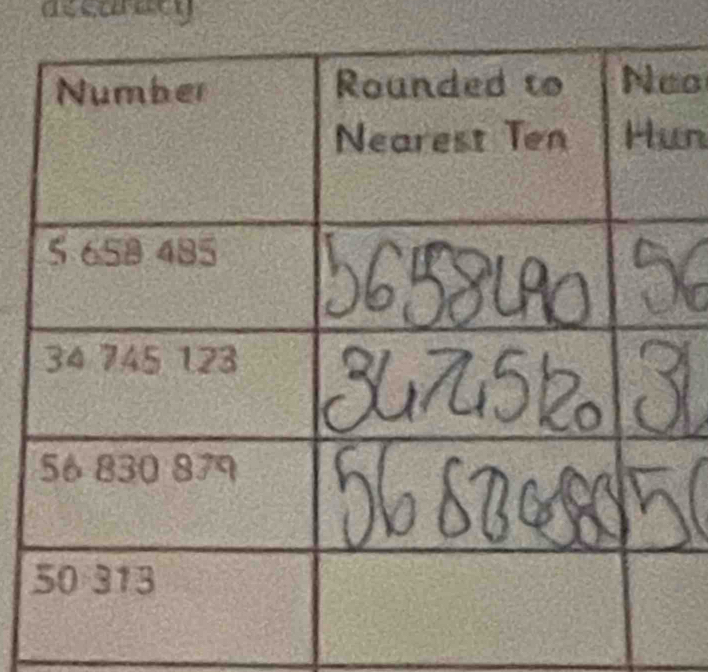 accuracy
Number Rounded to Nearest Ten
5 658 485 5658490
34 745 123 34745120
56 830 879 56830880
50 313